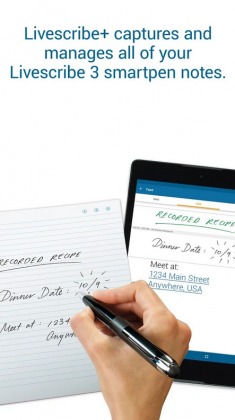 Livescribe+ captures and
manages all of your
Livescribe 3 smartpen notes.
RECORDED RECIPE
Dinner Date:
10/9
Meet at: 1234
Anyw
RECORDED RECIPE
Dinner Date:
10/9
Meet at:
1234 Main Street
Anywhere, USA